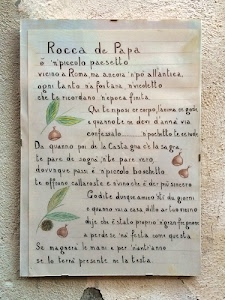 Rocca de Papa
è 'n piccolo paesetto
vicino a Roma, ma ancora 'n pò all'antica,
ogni tanto na fontana, 'n vicoletto
che te ricordano 'n'epoca finita.
Qui te riposi er corpo, l'anima se gode
e quanno te ne devi d'annà via
confessalo 'n pochetto te ne rode
Da quanno poi de la Castagna c'è la sagra,
te pare de sognà, 'nte pare vero,
dovunque passi è 'n piccolo boschetto
te offrono callaroste e vino che è der più sincero
Godite dunque amico 'sti du giorni
e quanno vai a casa, dillo ar tuo vicino
dije che è stato proprio 'n gran fregnone
a perde se 'na festa come questa
Se magnerà le mani e per 'n'antr'anno
se la terrà presente ne la testa.